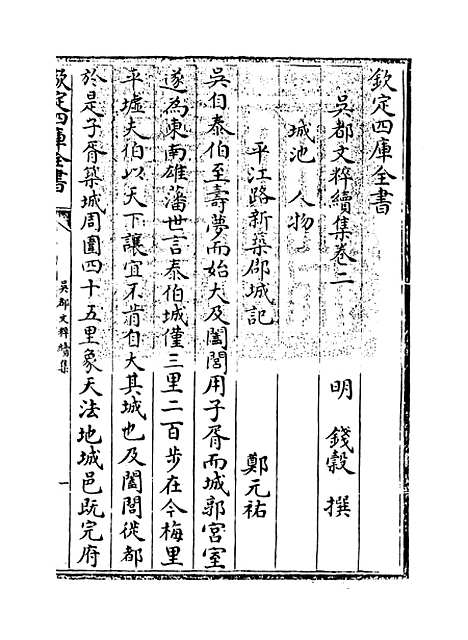 欽定四庫全書
吳都文粹續集卷二
明 錢穀 撰
城池 人物
平江路新築郡城記
鄭元祐
吳自泰伯至壽夢而始大及闔閭用子胥而城郭宮室
遂為東南雄藩世言泰伯城僅三里二百步在今梅里
平墟夫伯以天下讓宜不肯自大其城也及闔閭徙都
於是子胥築城周圍四十五里象天法地城邑既完府
欽定四庫全書
吳都文粹續集
一